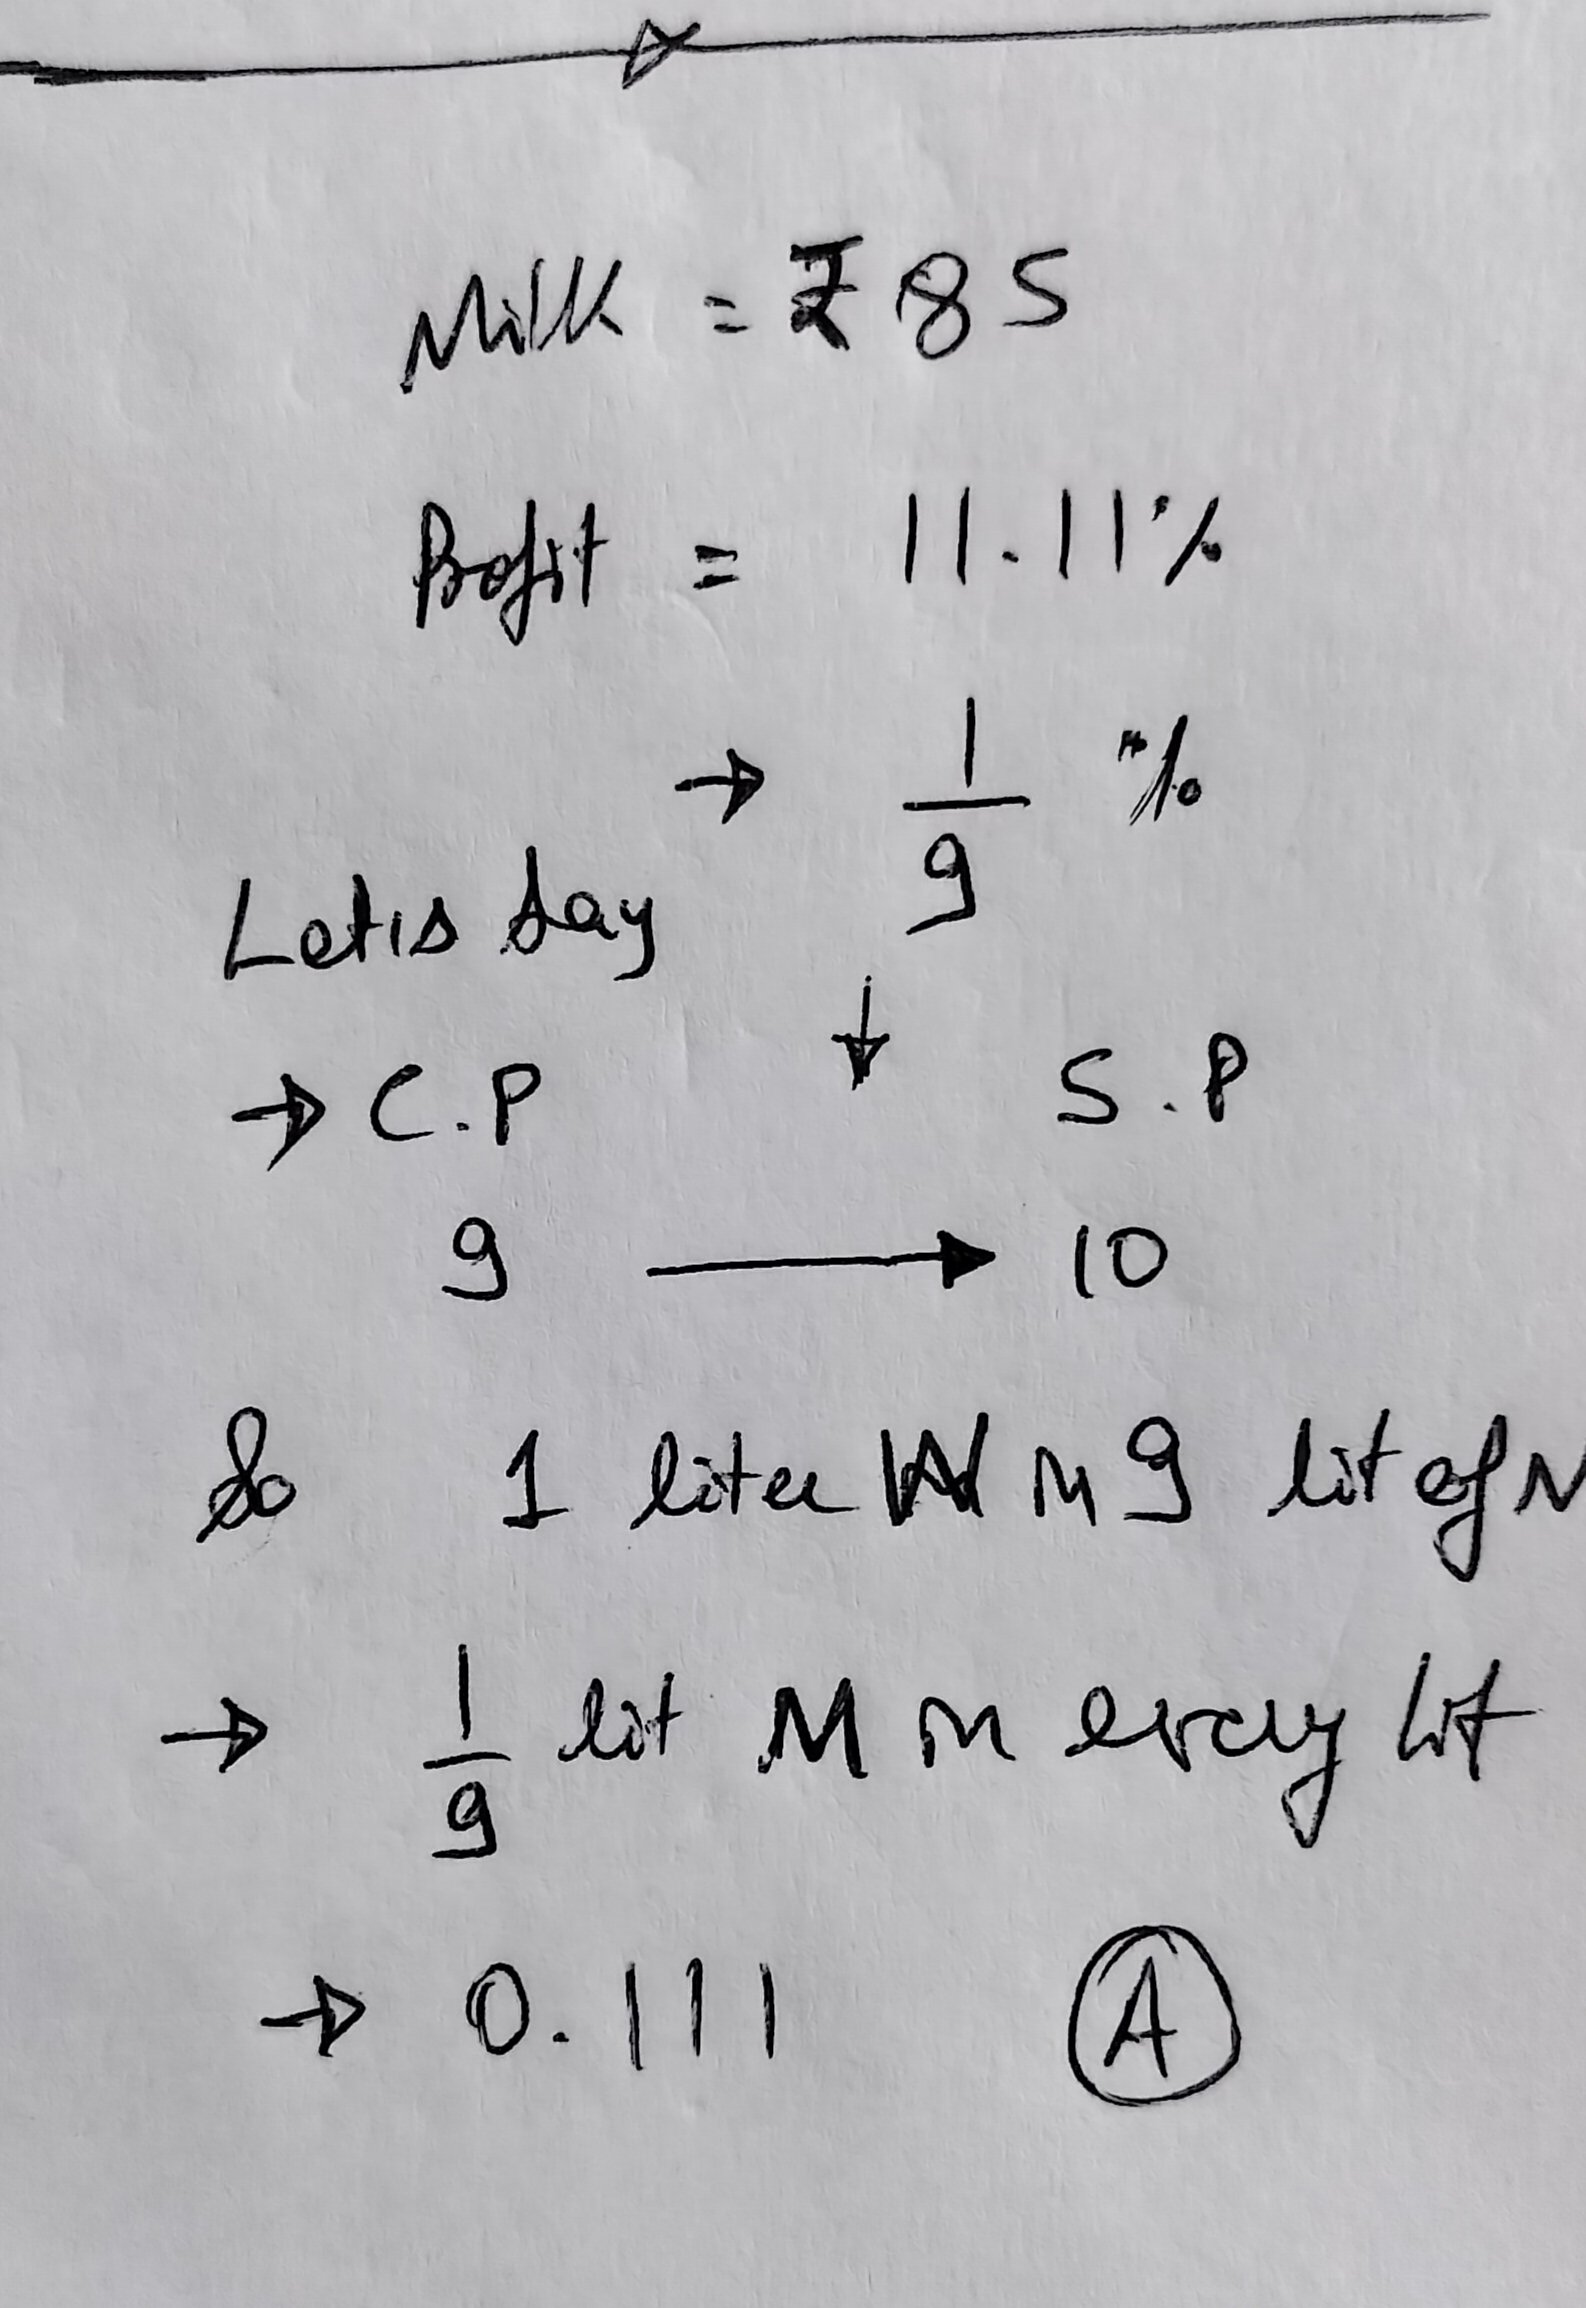 Milk = ₹ 85
Profit = 11.11%
→ 1/9 %
Let's say
↓
→ C.P S.P
9 → 10
So 1 liter W in 9 lit of M
→ 1/9 lit M in every lit
→ 0.111 A